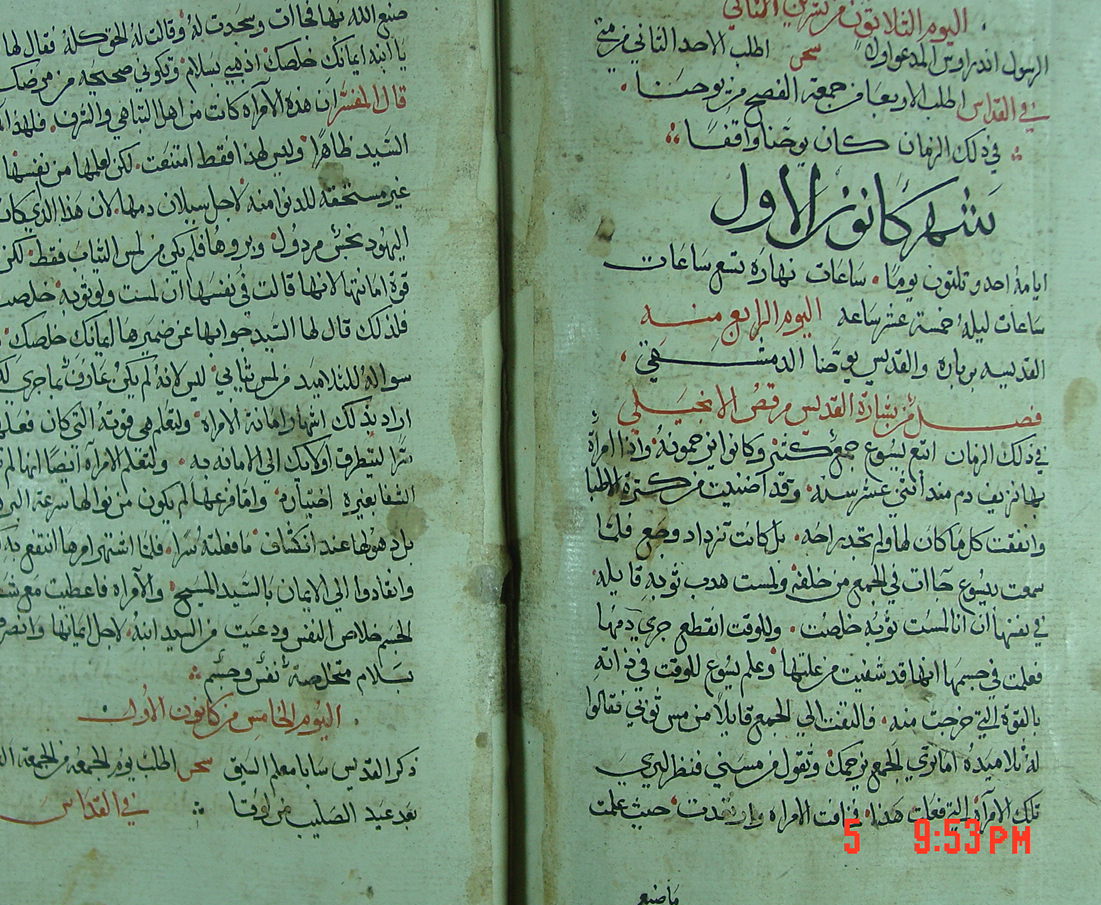 اليوم الثلاثون من تشرين الثاني
الرسول اندراوس المدعو اولا سحر اطلب الاحد الثاني من متي
في القداس اطلب الاربعا من جمعة الفصح من يوحنا
في ذلك الزمان كان يوحنا واقفا
شهر كانون الاول
ايامه احد وتلتون يوما ساعات نهاره تسع ساعات
ساعات ليله خمسة عشر ساعه اليوم الرابع منه
القديسه بربارة والقديس يوحنا الدمشقي
فصل من بشارة القديس مرقص الانجيلي
في ذلك الزمان اتبع يسوع جمع كثير وكانوا يزحمونه واذا امراة
بها نزيف دم مند اثني عشر سنه وقد اضنيت من كترة الاطبا
وانفقت كل ما كان لها ولم تجد راحه بل كانت تزداد وجع فلما
سمعت بيسوع جاات في الجمع من خلفه ولمست هدب توبه قايله
في نفسها ان انا لمست توبه خلصت وللوقت انقطع جري دمها
فعلمت في جسمها انها قد شفيت من علتها وعلم يسوع للوقت في ذاته
بالقوة التي خرجت منه فالتفت الي الجمع قايلا من مس توبي فقالوا
له تلاميذه اما تري الجمع يزحمك وتقول من مسني فنظر ليري
تلك الامرآة التي فعلت هذا فخافت الامراه وارتعدت حيث علمت
ما صنع
صنع الله بها فجاات وسجدت له وقالت له الحق كله فقال لها
يا ابنه ايمانك خلصك اذهبي بسلام وتكوني صحيحه من مرضك
قال المفسر ان هذه الامراه كانت من اهل التباهي والترف فلهذا
السيد ظاهرا وليس لهذا فقط امتنعت لكن لعلمها من نفسها
غير مستحقه للدنو امنه لاجل سيلان دمها لان هذا الذي كان
اليهود نجس مردول وبروها فلم يكن من لمس التياب فقط لكن
قوة امانتها لانها قالت في نفسها ان لمست ولو توبه خلصت
فلذلك قال لها السيد جوابها عن ضميرها ايمانك خلصك
سواله للتلاميد من لمس تيابي ليس لانه لم يكن عارف بما جري
اراد بذلك اشهار امانة الامراه ولتعلم هي قوته التي كان
سرا ليتطرق اولايك الي الامانه به ولتعلم الامراه ايضا انها لم
الشفا بغيره
بل دهولها عند انكشاف ما فعلته سرا فلما اشتهر امرها انتفع به
وانقادوا الي الايمان بالسيد المسيح والامراه فاعطيت مع
الجسم خلاص النفس ودعيت من السيد ابنة لاجل ايمانها
بسلام متخلصة نفس وجسم
اليوم الخامس من كانون الاول
ذكر القديس سابا معلم السيق سحر اطلب يوم الجمعه من الجمعة
بعد عيد الصليب من لوقا في القداس
5 9:53 PM